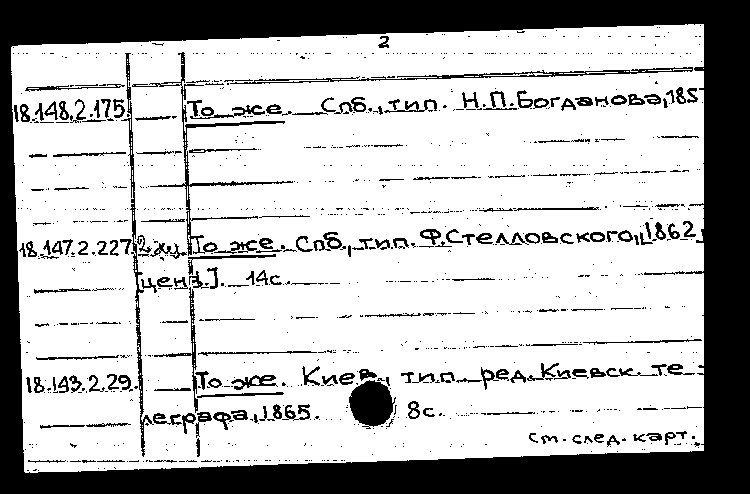 2
18.148.2.175. То же. Спб., тип. Н.П.Богданова, 185
18.147.2.227. То же. Спб., тип. Ф.Стелловского, [1862,
[ценз.]. 14с.
18.143.2.29. То же. Киев, тип. ред. Киевск. те-
леграфа, 1865. 8с.
см. след. карт.